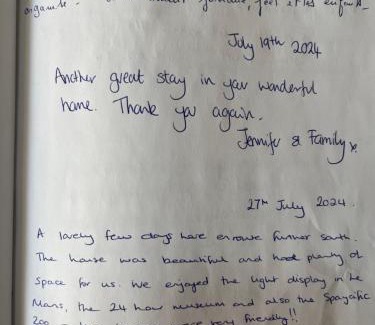 organise
July 19th 2024
Another great stay in your wonderful
home. Thank you again.
Jennifer & Family x
27th July 2024.
A lovely few days here enroute further south.
The house was beautiful and had plenty of
space for us. We enjoyed the light display in Le
Mans, the 24 hour museum and also the Spaycific
Zoo very friendly!!